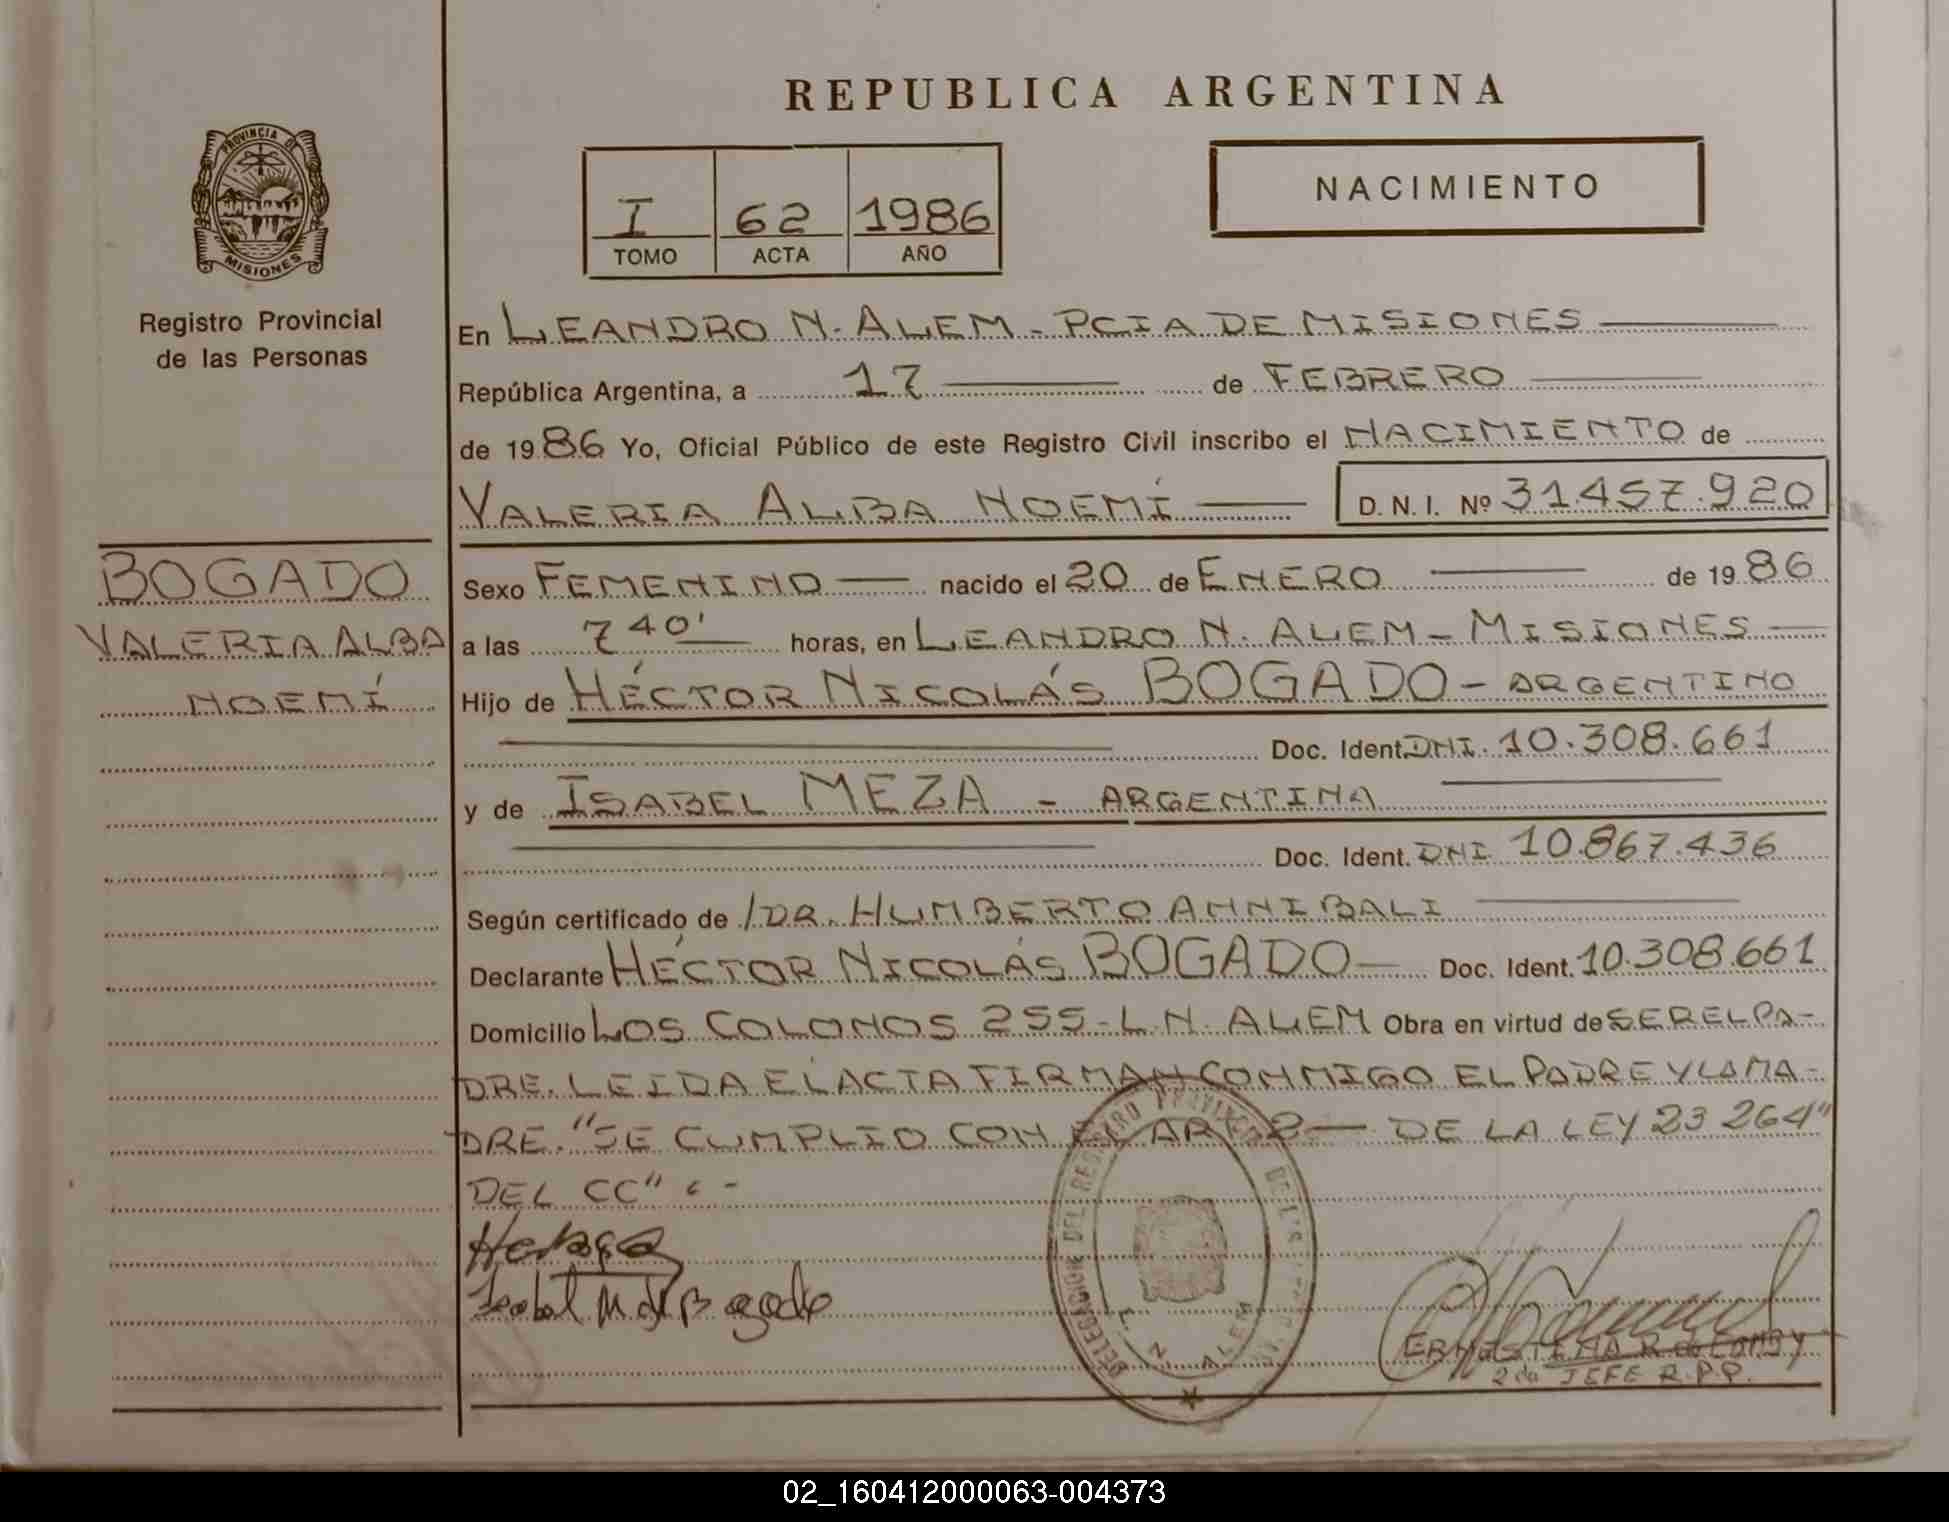 REPUBLICA ARGENTINA
PROVINCIA DE
MISIONES
Registro Provincial
de las Personas
I 62 1986
TOMO ACTA AÑO
NACIMIENTO
En LEANDRO N. ALEM - PCIA DE MISIONES
República Argentina, a 17 de FEBRERO
de 1986 Yo, Oficial Público de este Registro Civil inscribo el NACIMIENTO de
VALERIA ALBA NOEMÍ D. N. I. Nº 31.457.920
BOGADO
VALERIA ALBA
NOEMÍ
Sexo FEMENINO nacido el 20 de ENERO de 1986
a las 7 40' horas, en LEANDRO N. ALEM - MISIONES
Hijo de HÉCTOR NICOLÁS BOGADO - ARGENTINO
Doc. Ident. DNI. 10.308.661
y de ISABEL MEZA - ARGENTINA
Doc. Ident. DNI 10.867.436
Según certificado de /DR. HUMBERTO ANNIBALI
Declarante HÉCTOR NICOLÁS BOGADO Doc. Ident. 10.308.661
Domicilio LOS COLONOS 255 - L.N. ALEM Obra en virtud de SER EL PA-
DRE. LEIDA EL ACTA FIRMAN CONMIGO EL PADRE Y LA MA-
DRE. "SE CUMPLIO CON EL ART 2 — DE LA LEY 23 264"
DEL CC"
Isabel M de Bogado
DELEGACION DEL REGISTRO PROVINCIAL DE LAS
L. N. ALEM
ERNESTINA R. de
2da JEFE R.P.P.
02_160412000063-004373